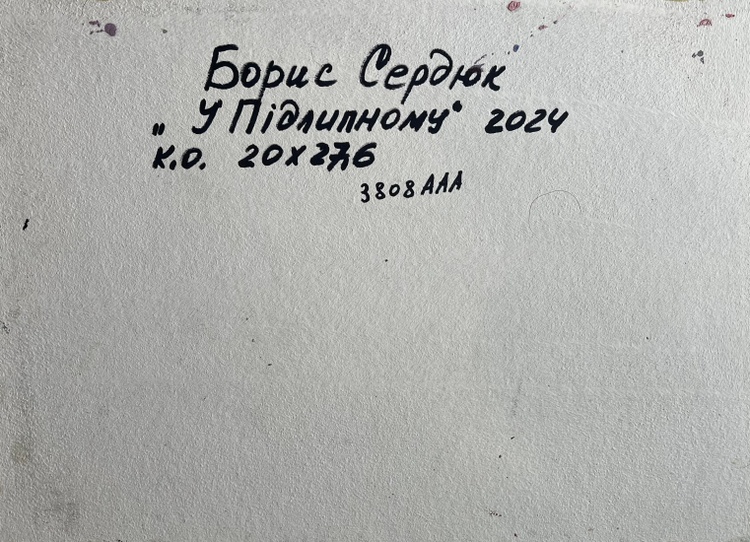 Борис Сердюк
„У Підлипному" 2024
К.О. 20х27,6
3808ААА